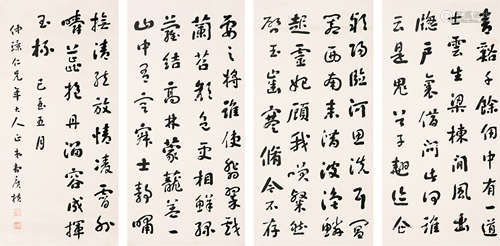 青谿千餘仞中有一道
士雲生梁棟間風出
牕戶裏借問此何誰
云是鬼谷子翹迹企
潁陽臨河思洗耳閶
闔西南來潛波渙鱗
起靈妃顧我笑粲然
啓玉齒蹇脩今不存
要之將誰使翡翠戲
蘭苕容色更相鮮綠
蘿結高林蒙籠蓋一
山中有冥寂士靜嘯
撫清絃放情凌霄外
嚼蕊挹丹溜容成揮
玉杯 五月
仁兄年大人正